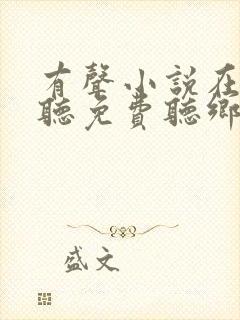 有聲小説在
聽免費聽鄉
盛文